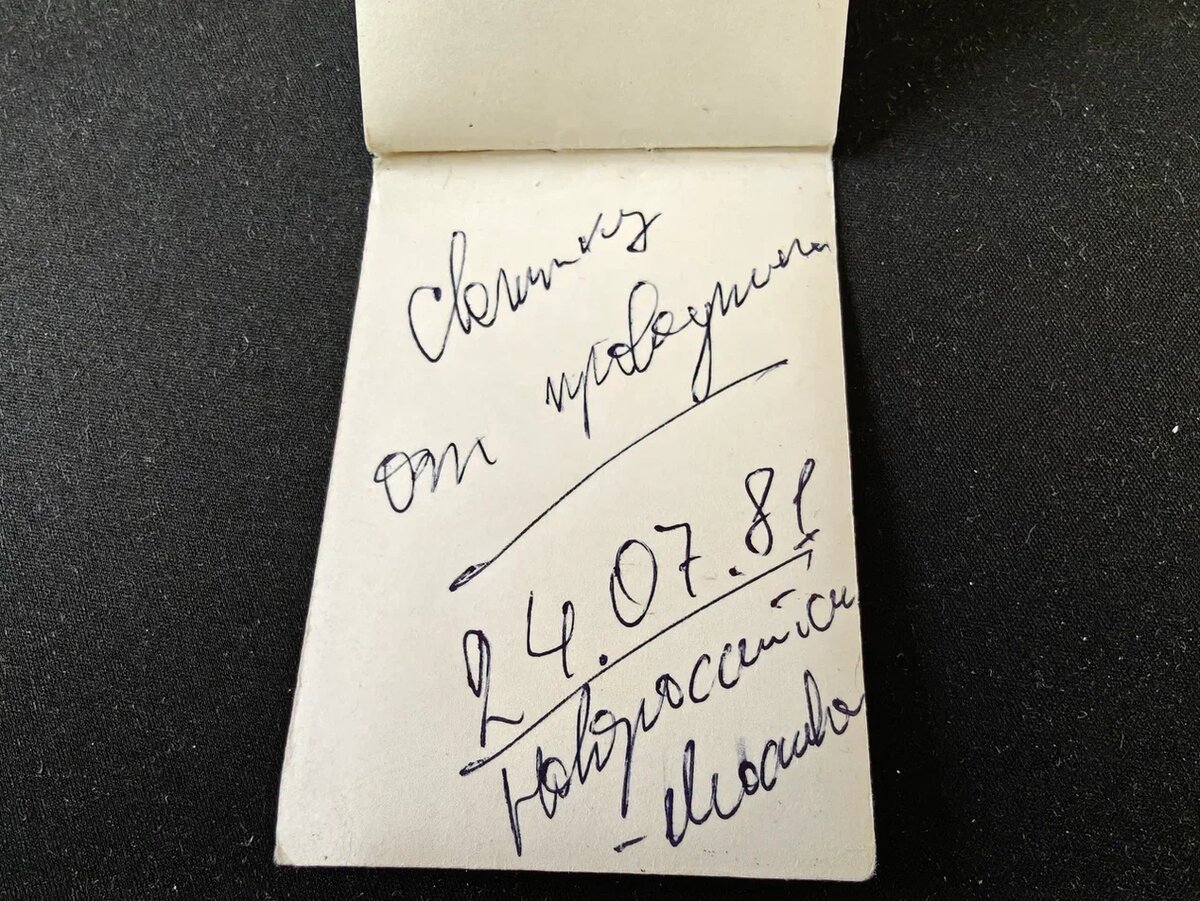 Светику
от проводника
24.07.81
Новороссийск
- Москва